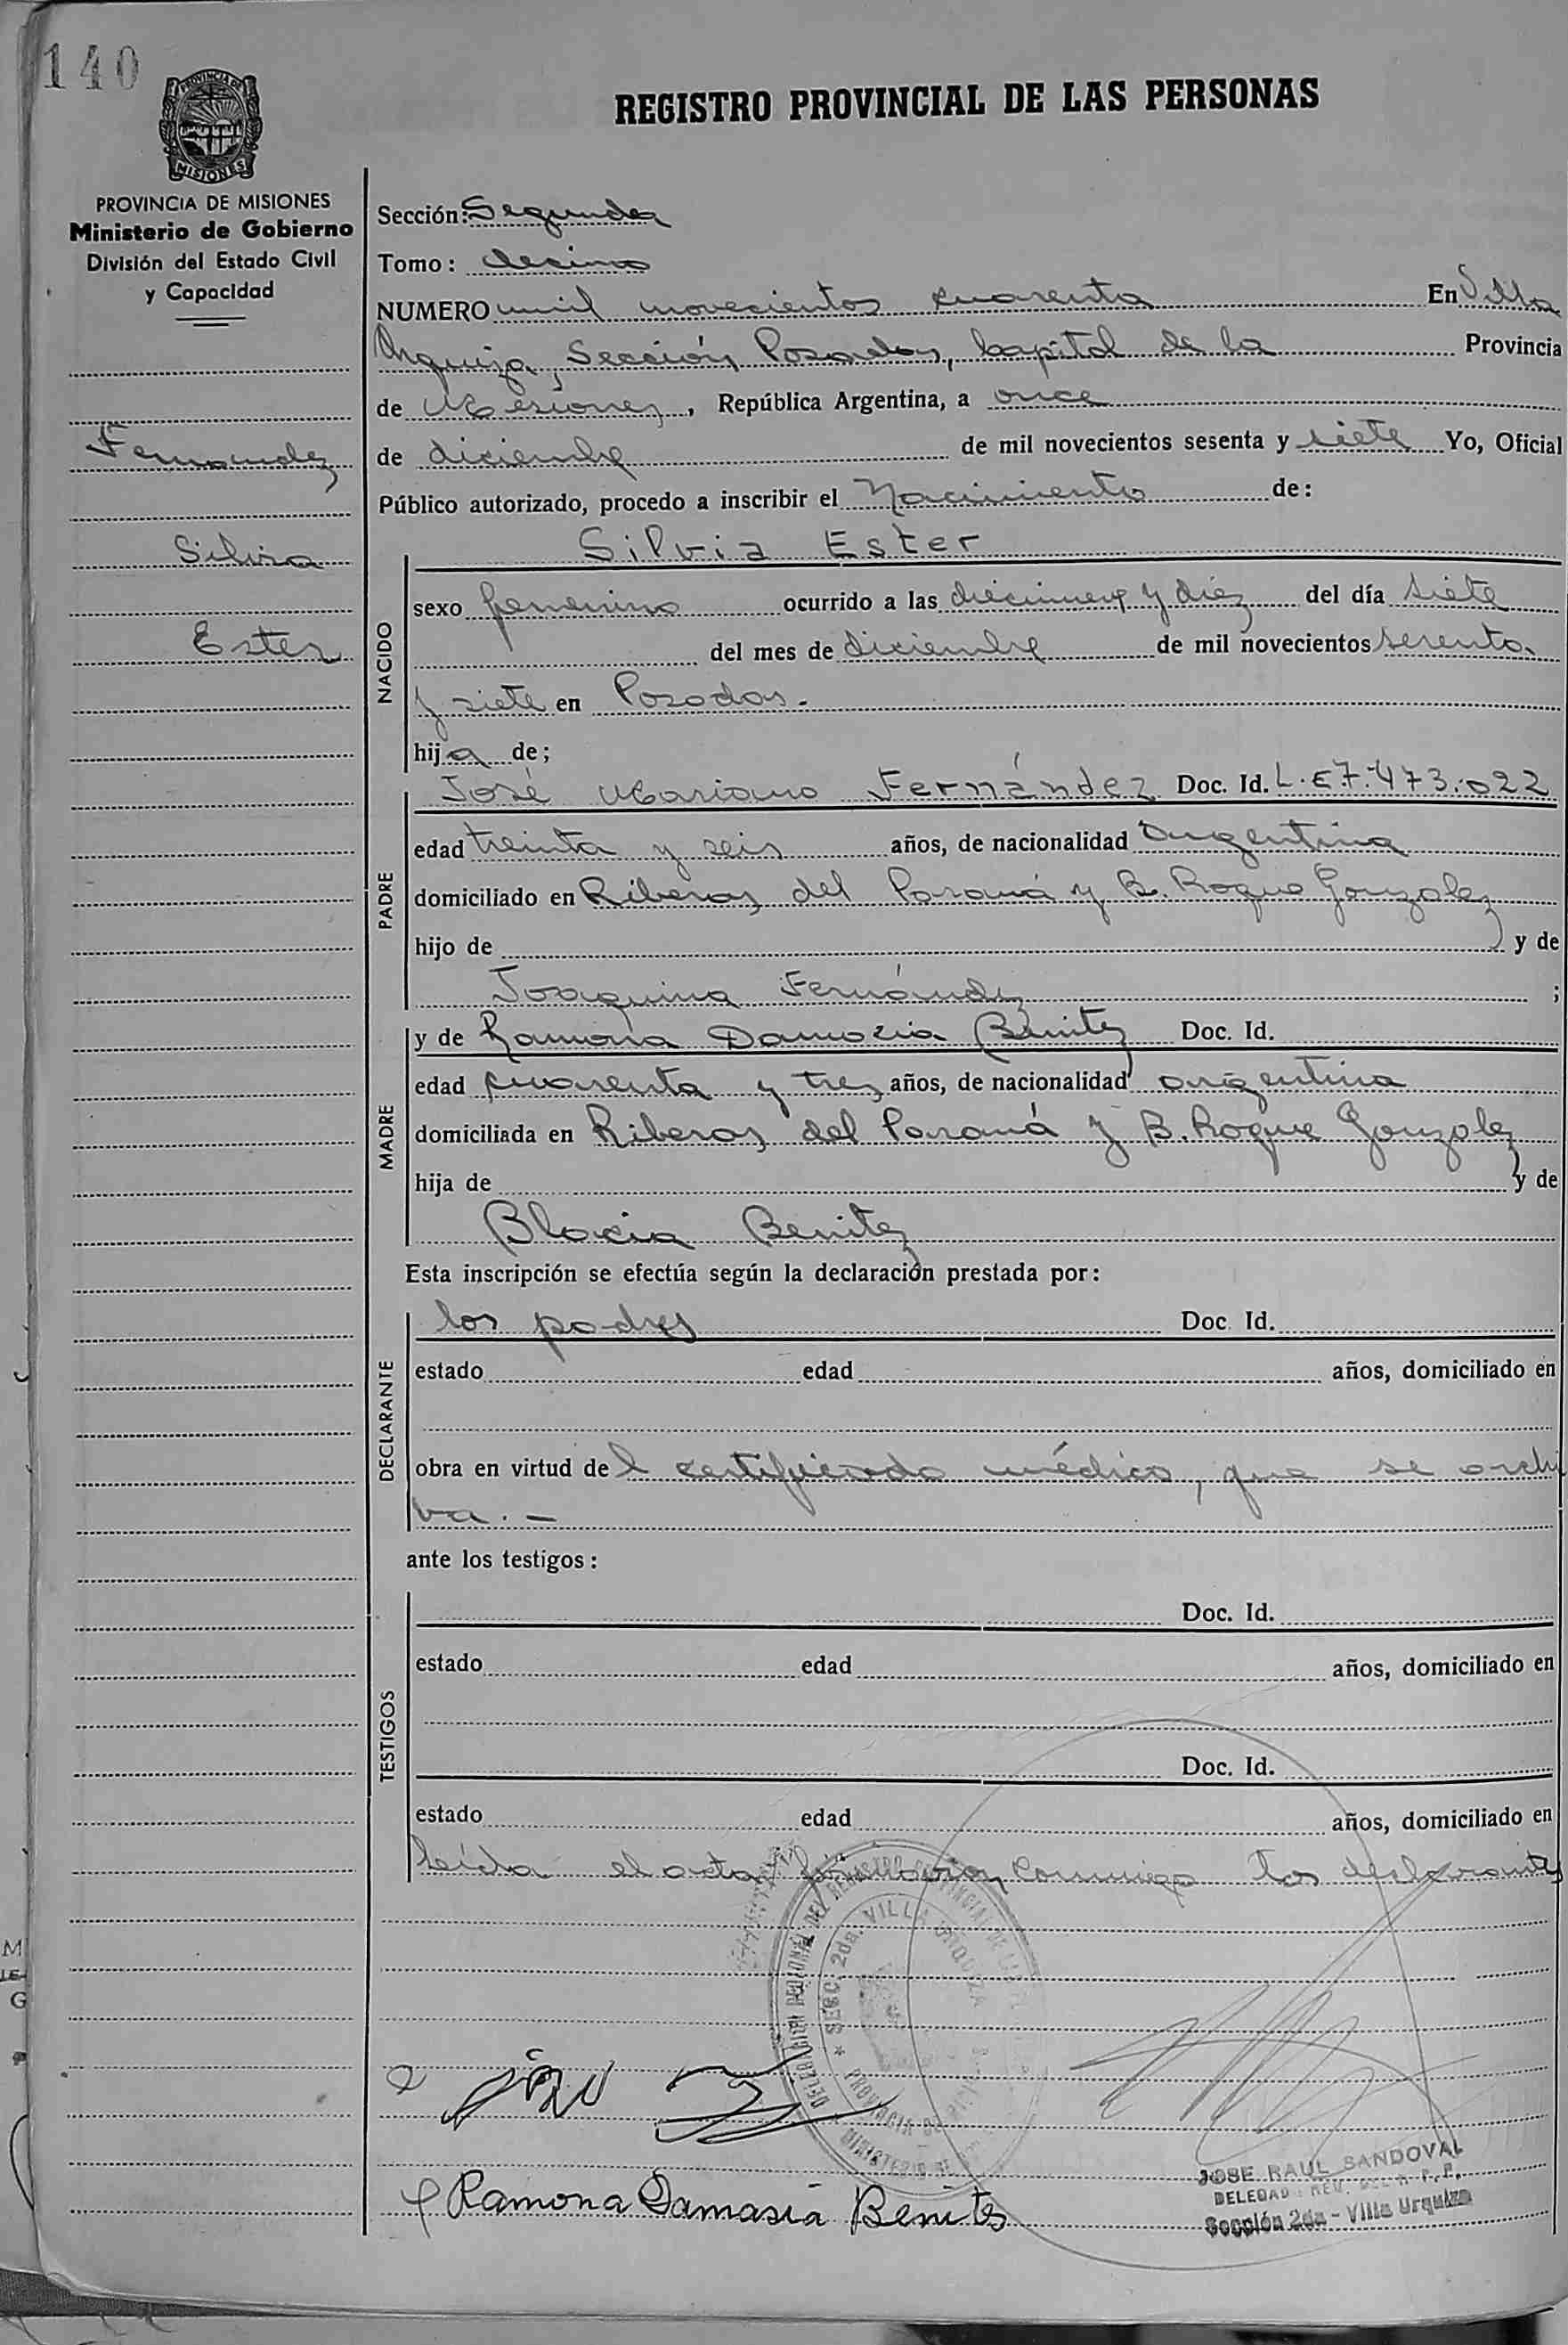 140
PROVINCIA DE
MISIONES
REGISTRO PROVINCIAL DE LAS PERSONAS
PROVINCIA DE MISIONES
Ministerio de Gobierno
División del Estado Civil
y Capacidad
Fernandez
Silvia
Ester
Sección: Segunda
Tomo: decimo
NUMERO mil novecientos cuarenta En Villa
Urquiza, Sección Posadas, Capital de la Provincia
de Misiones, República Argentina, a once
de diciembre de mil novecientos sesenta y siete Yo, Oficial
Público autorizado, procedo a inscribir el Nacimiento de:
NACIDO
Silvia Ester
sexo femenino ocurrido a las diecinueve y diez del día siete
del mes de diciembre de mil novecientos sesenta
y siete en Posadas.
hija de;
PADRE
José Mariano Fernández Doc. Id. L.E 7.473.022
edad treinta y seis años, de nacionalidad Argentina
domiciliado en Riberas del Paraná y B. Roque Gonzalez
hijo de y de
Joaquina Fernández ;
MADRE
y de Ramona Damacia Benitez Doc. Id.
edad cuarenta y tres años, de nacionalidad argentina
domiciliada en Riberas del Paraná y B. Roque Gonzalez
hija de y de
Blacia Benitez
Esta inscripción se efectúa según la declaración prestada por:
DECLARANTE
los padres Doc. Id.
estado edad años, domiciliado en
obra en virtud del certificado médico, que se archi
va. -
ante los testigos:
TESTIGOS
Doc. Id.
estado edad años, domiciliado en
Doc. Id.
estado edad años, domiciliado en
Leída el acta, firmaron conmigo los declarantes
SECC. 2da. VILLA URQUIZA
Ramona Damasia Benites
JOSE RAUL SANDOVAL
Sección 2da - Villa Urquiza